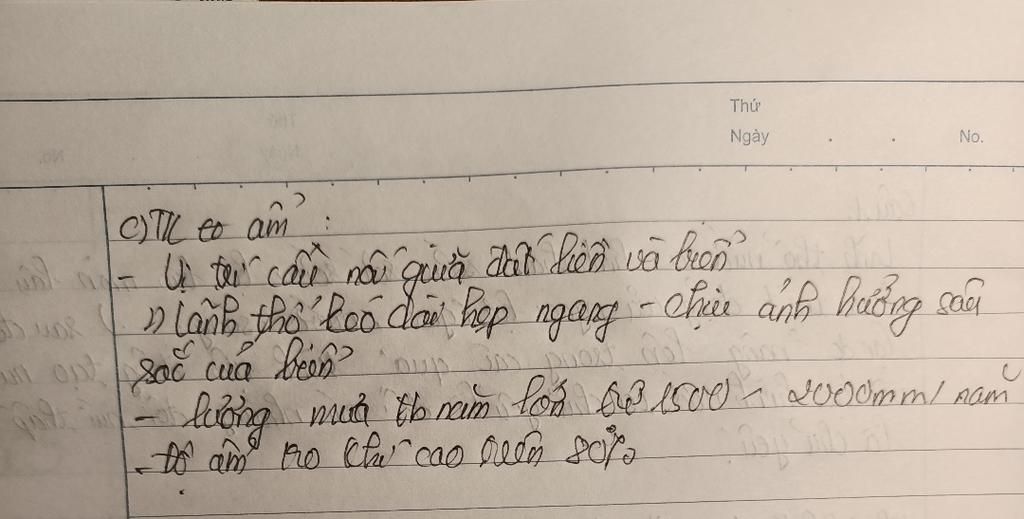 Thứ
Ngày . . No.
c) TC ẩm :
- Vị trí cầu nối giữa đất liền và biển
Lãnh thổ kéo dài hẹp ngang - chịu ảnh hưởng sâu
sắc của biển
- lượng mưa tb năm lớn 1500 - 2000mm/năm
- độ ẩm ko khí cao trên 80%